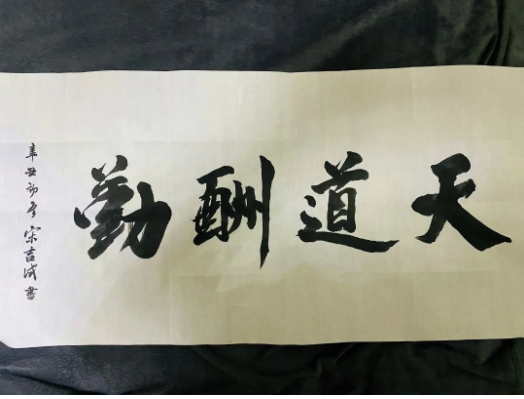 天道酬勤
辛丑初夏 宋吉成書